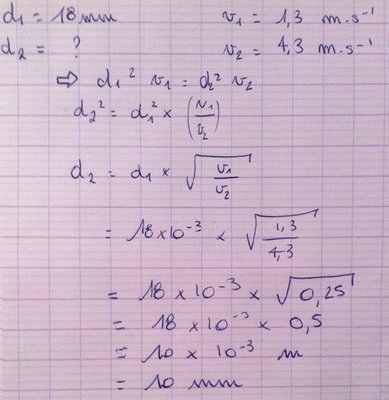 d₁ = 18 mm v₁ = 1,3 m.s⁻¹
d₂ = ? v₂ = 4,3 m.s⁻¹
⇒ d₁² v₁ = d₂² v₂
d₂² = d₁² × (v₁/v₂)
d₂ = d₁ × √(v₁/v₂)
= 18×10⁻³ × √(1,3/4,3)
= 18 × 10⁻³ × √0,25
= 18 × 10⁻³ × 0,5
= 10 × 10⁻³ m
= 10 mm